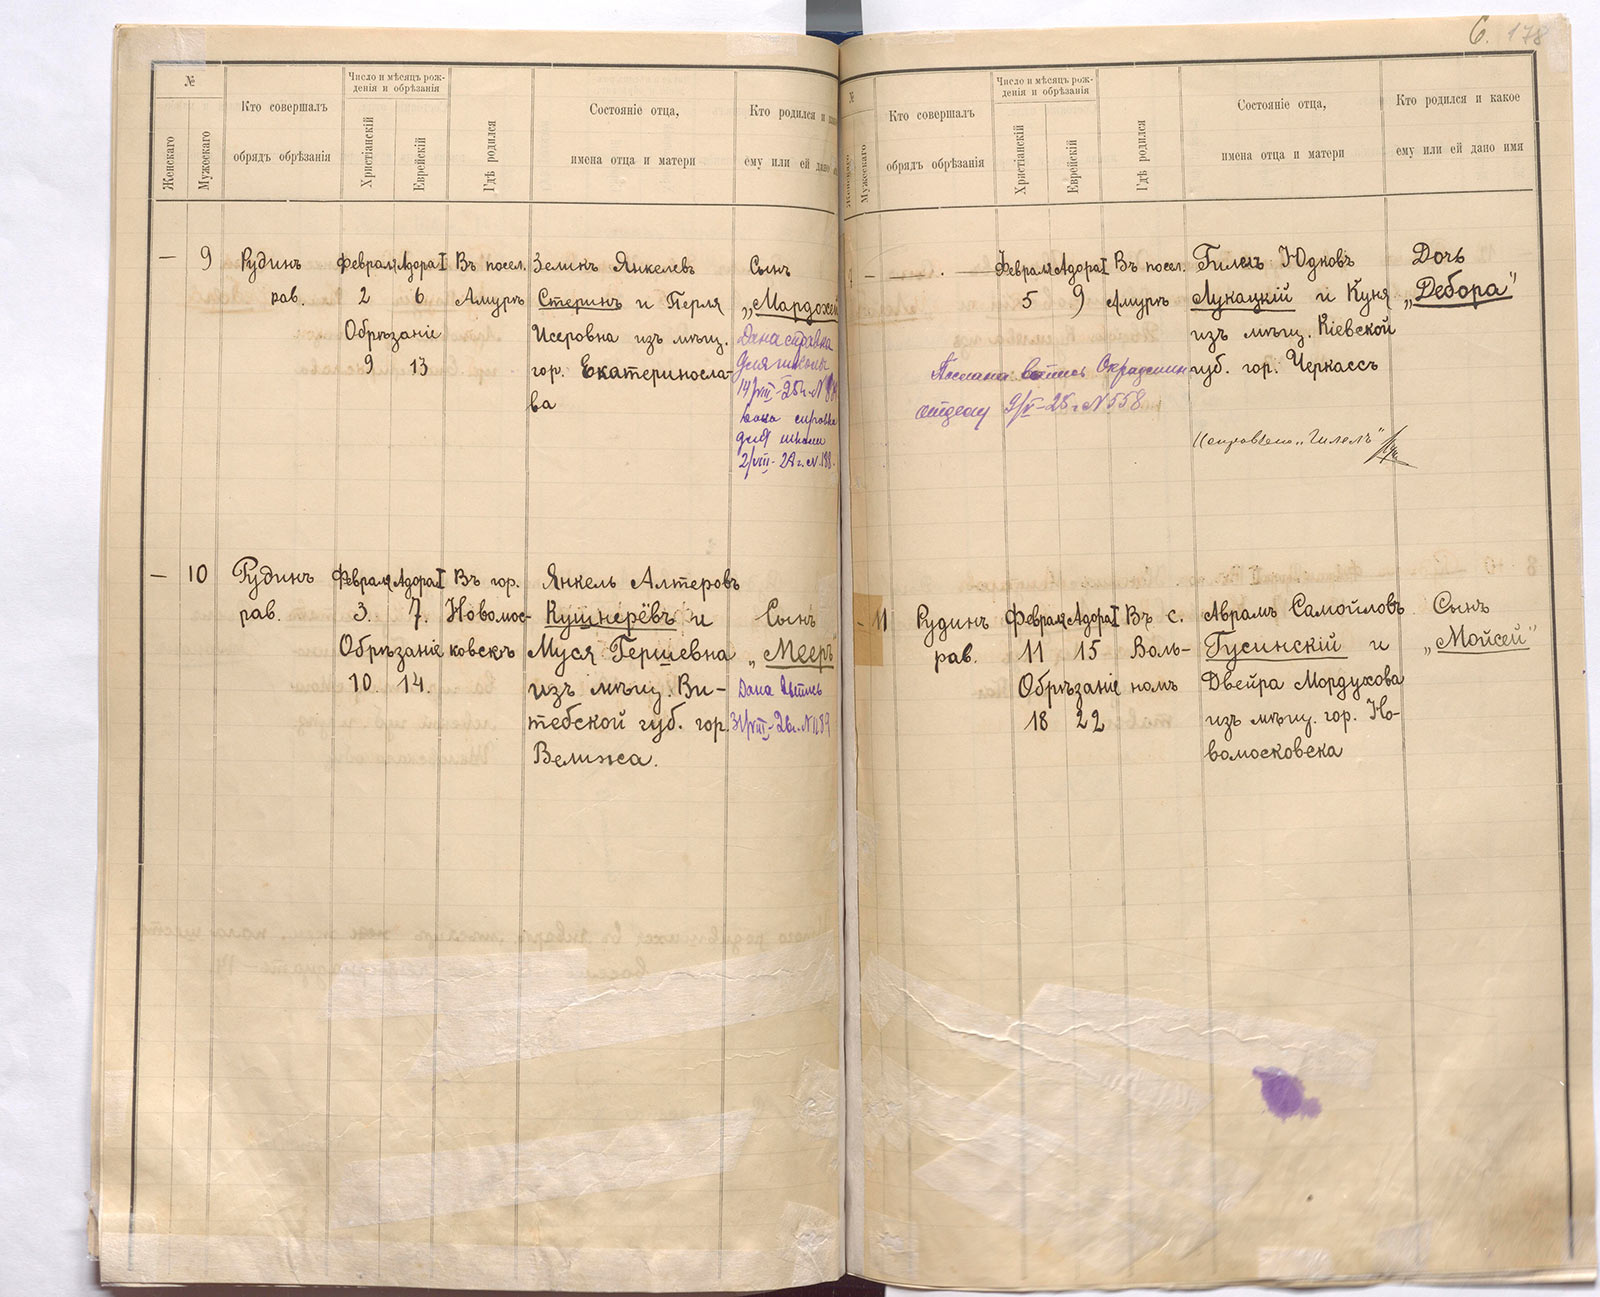 6. 178
№
Женскаго
Мужескаго
Кто совершалъ
обрядъ обрѣзанія
Число и мѣсяцъ рож-
денія и обрѣзанія
Христіанскій
Еврейскій
Гдѣ родился
Состояніе отца,
имена отца и матери
Кто родился и
ему или ей дано
— 9 Рудинъ Февраля Адора I Въ посел. Зеликъ Янкелевъ Сынъ
рав. 2 6 Амуръ Стеринъ и Перля „Мардохей
Обрѣзаніе Исеровна изъ мѣщ. Дана справка
9 13 гор. Екатериносла- для школы
ва 14/VIII-25г. №
Дана справка
для школы
2/VIII-28г. № 188.
— 10 Рудинъ Февраля Адора I Въ гор. Янкель Алтеровъ
рав. 3. 7. Новомос- Кушнерёвъ и Сынъ
Обрѣзаніе ковскъ Муся Гершевна „Мееръ"
10. 14. изъ мѣщ. Ви- Дана выпись
тебской губ. гор. 31/VIII-26г. № 1189
Велижа.
№
Женскаго
Мужескаго
Кто совершалъ
обрядъ обрѣзанія
Число и мѣсяцъ рож-
денія и обрѣзанія
Христіанскій
Еврейскій
Гдѣ родился
Состояніе отца,
имена отца и матери
Кто родился и какое
ему или ей дано имя
— Февраля Адора I Въ посел. Гилель Юдковъ Дочь
5 9 Амуръ Лукацкій и Куня „Дебора"
изъ мѣщ. Кіевской
губ. гор. Черкассъ
Послана выпись
отделу 9/V-25г № 558
Исправлено „Гилель"
- 11 Рудинъ Февраля Адора I Въ с. Аврамъ Самойловъ Сынъ
рав. 11 15 Воль- Гусинскій и „Мойсей"
Обрѣзаніе номъ Двейра Мордухова
18 22 изъ мѣщ. гор. Но-
вомосковска